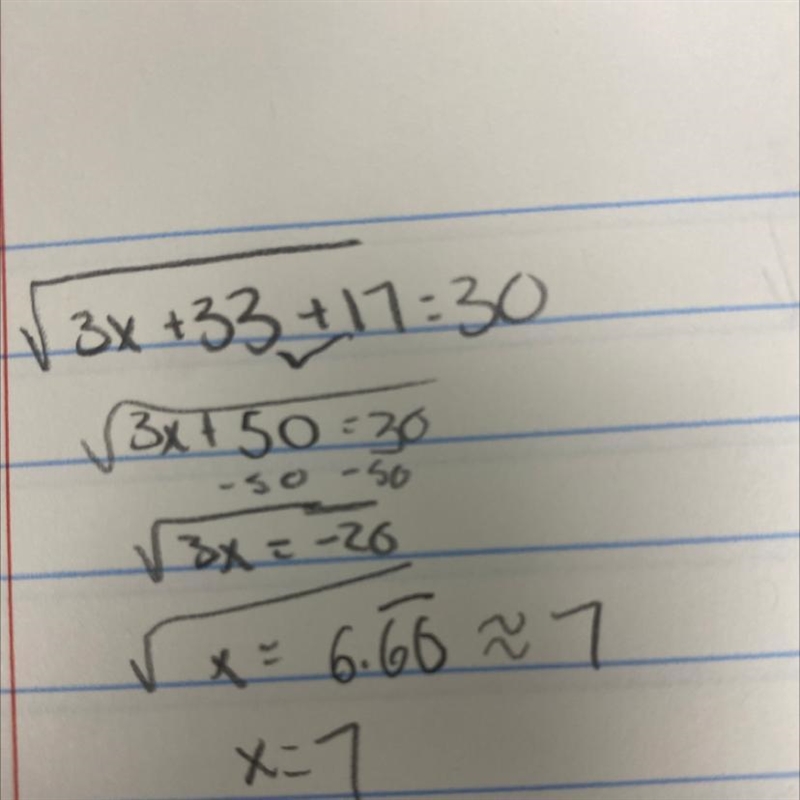 √3x+33+17=30
√3x+50=30
-50 -50
√3x=-20
√x=6.66≈7
x=7